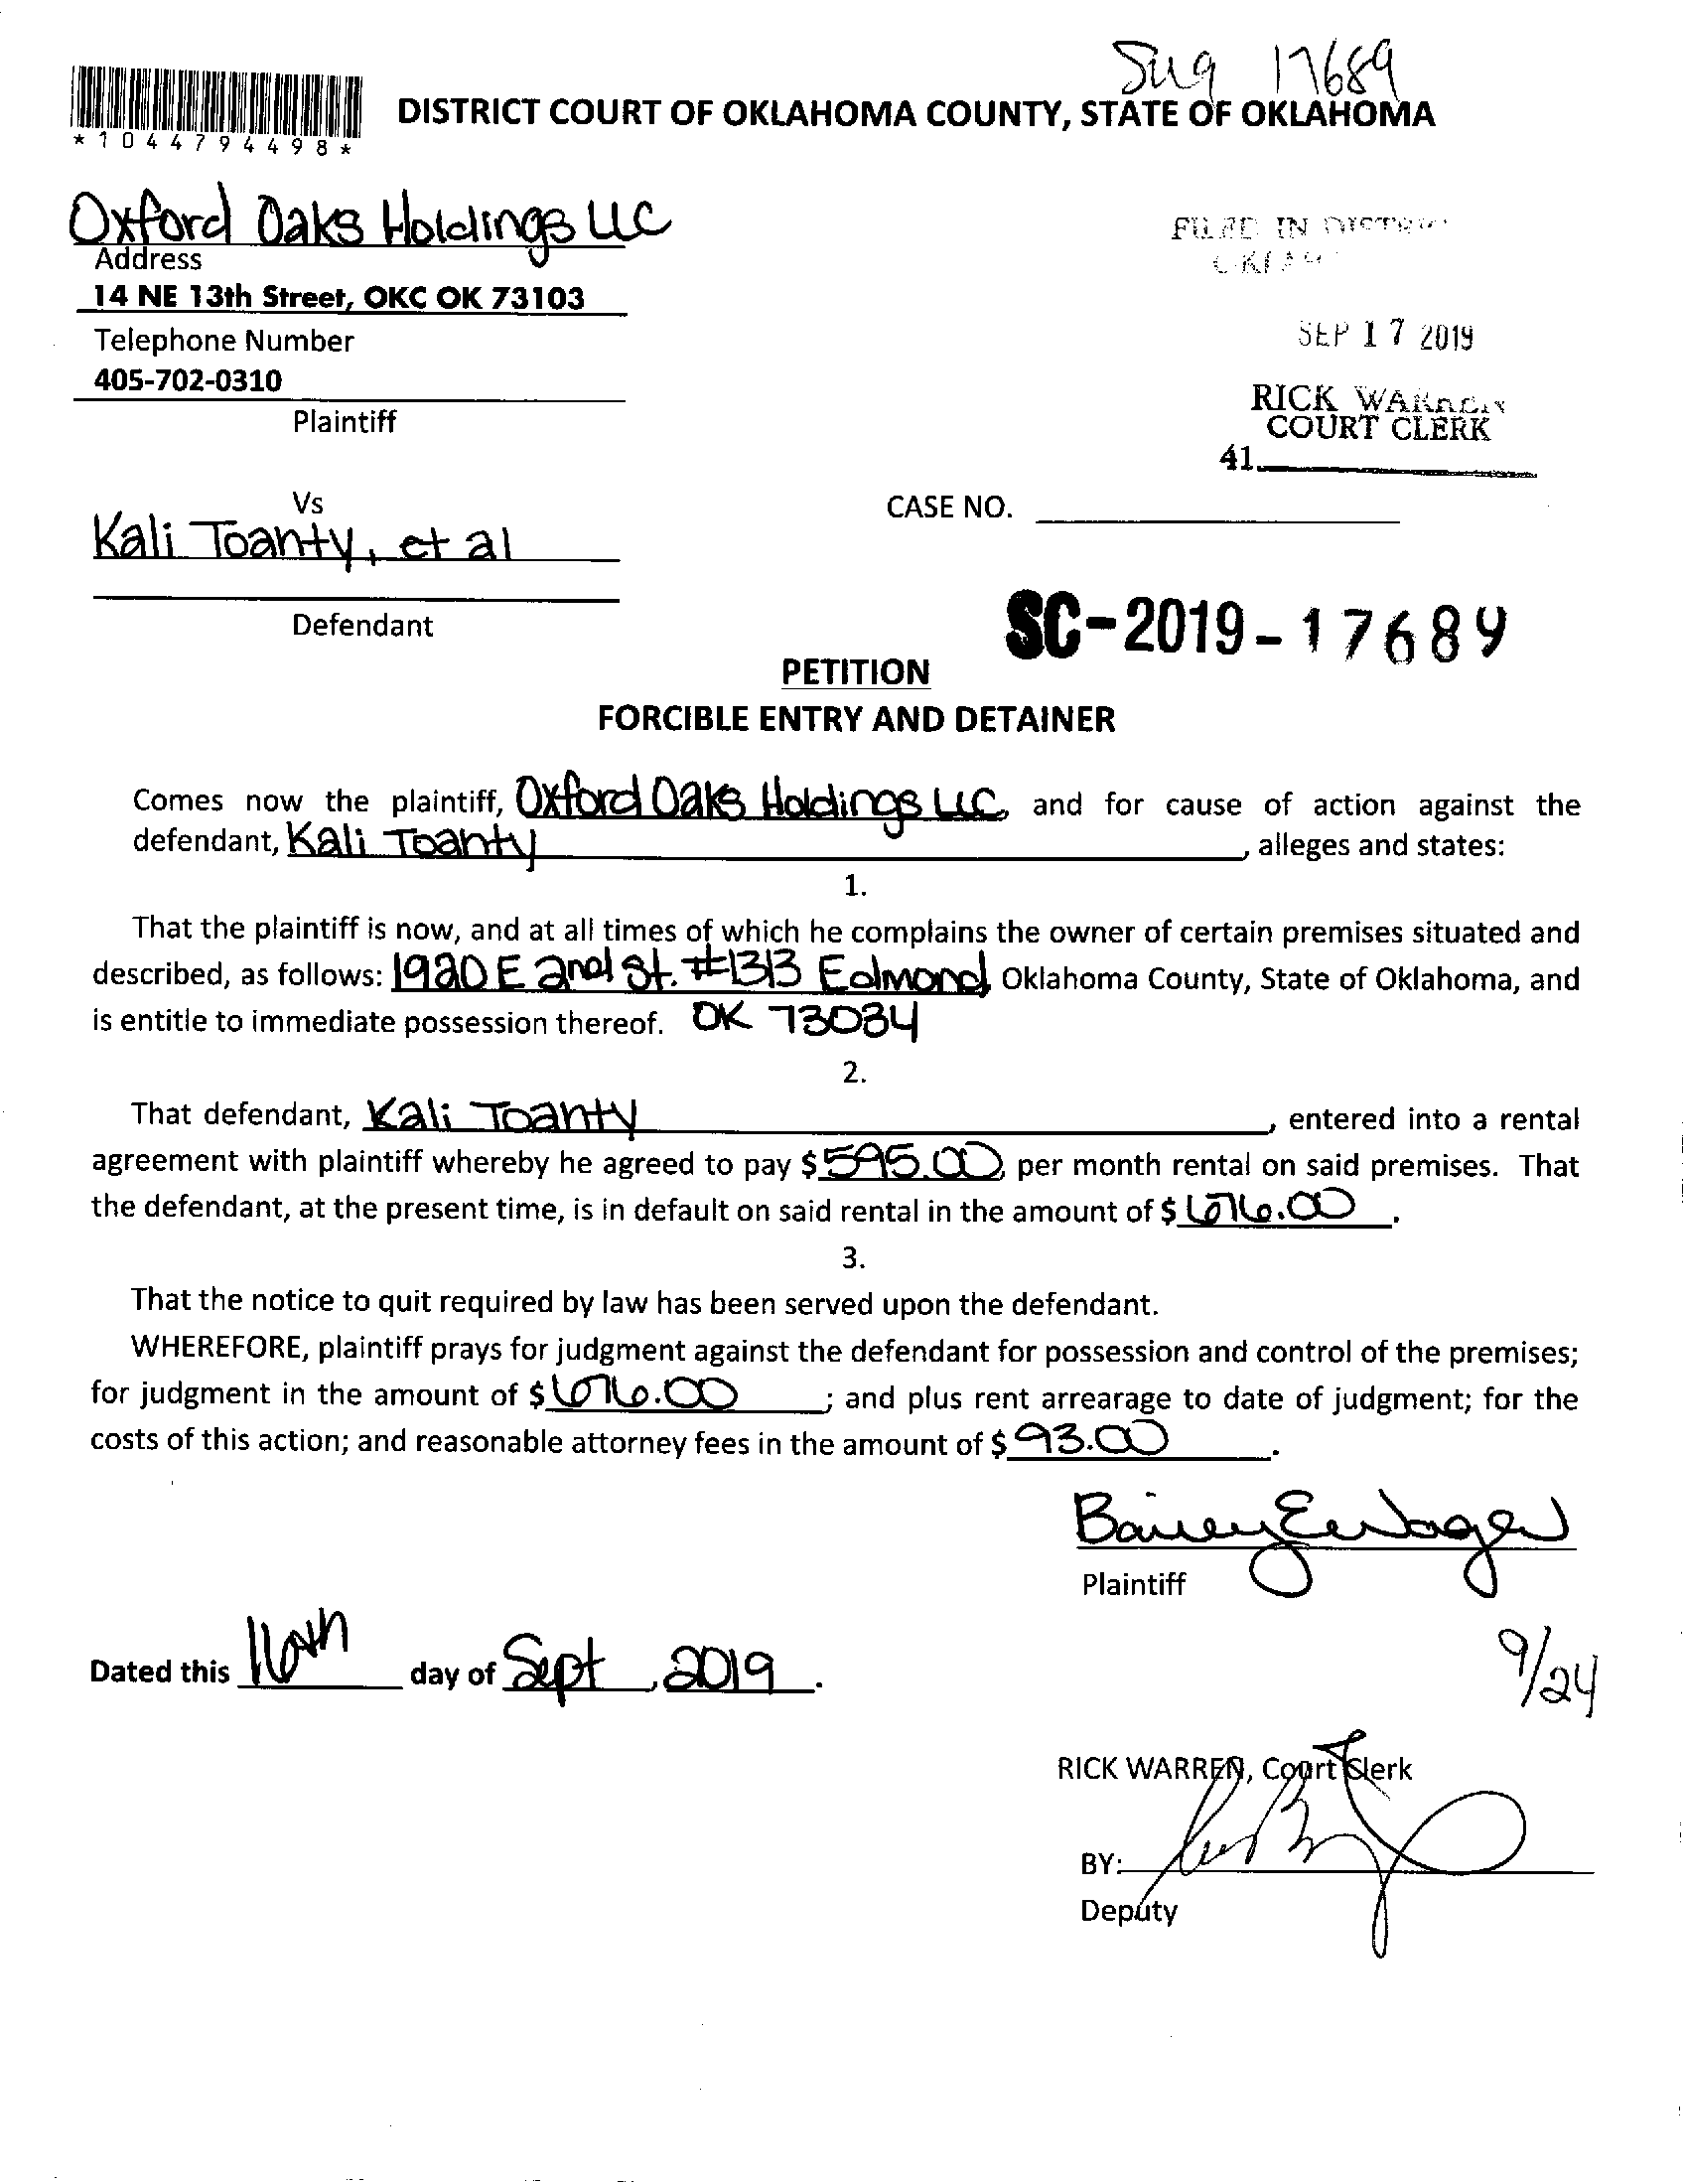 17689
*1044794498*
DISTRICT COURT OF OKLAHOMA COUNTY, STATE OF OKLAHOMA
Oxford Oaks Holdings LLC
Address
14 NE 13th Street, OKC OK 73103
Telephone Number
405-702-0310
Plaintiff
FILED IN
SEP 17 2019
RICK WARREN
COURT CLERK
41
Vs
Kali Toanty, et al
CASE NO.
Defendant
SC-2019-17689
PETITION
FORCIBLE ENTRY AND DETAINER
Comes now the plaintiff, Oxford Oaks Holdings LLC, and for cause of action against the
defendant, Kali Toanty, alleges and states:
1.
That the plaintiff is now, and at all times of which he complains the owner of certain premises situated and
described, as follows: 1920 E 2nd St. #1313 Edmond, Oklahoma County, State of Oklahoma, and
is entitle to immediate possession thereof. OK 73034
2.
That defendant, Kali Toanty, entered into a rental
agreement with plaintiff whereby he agreed to pay $595.00, per month rental on said premises. That
the defendant, at the present time, is in default on said rental in the amount of $676.00.
3.
That the notice to quit required by law has been served upon the defendant.
WHEREFORE, plaintiff prays for judgment against the defendant for possession and control of the premises;
for judgment in the amount of $676.00; and plus rent arrearage to date of judgment; for the
costs of this action; and reasonable attorney fees in the amount of $93.00.
Plaintiff
Dated this 16th day of Sept, 2019.
9/24
RICK WARREN, Court Clerk
BY:
Deputy